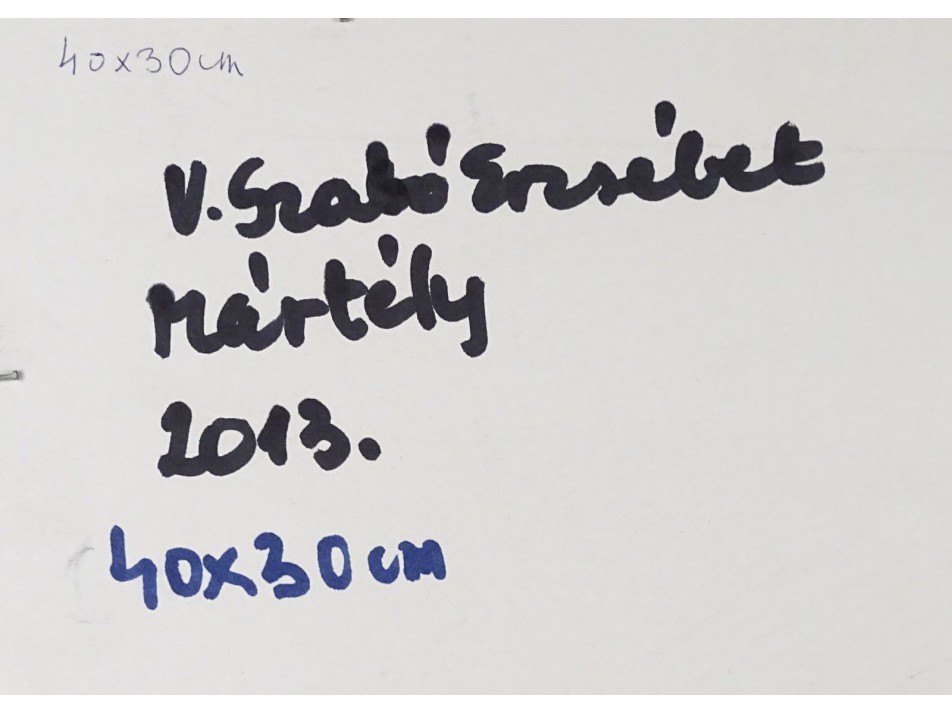 40x30cm
V. Szabó Erzsébet
Mártély
2013.
40x30cm